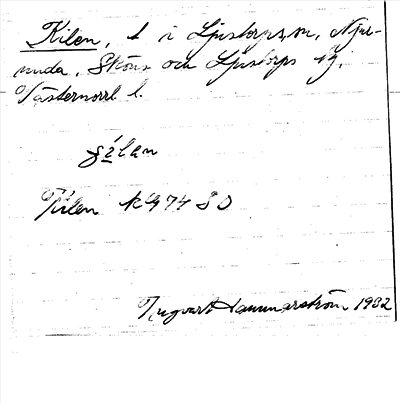 Kilen, t i Ljustorps sn, Njur-
unda, Sköns och Ljustorps tg,
Västernorrl l.
Kilen K 4 74 S O
Ingvart Hammarström 1932